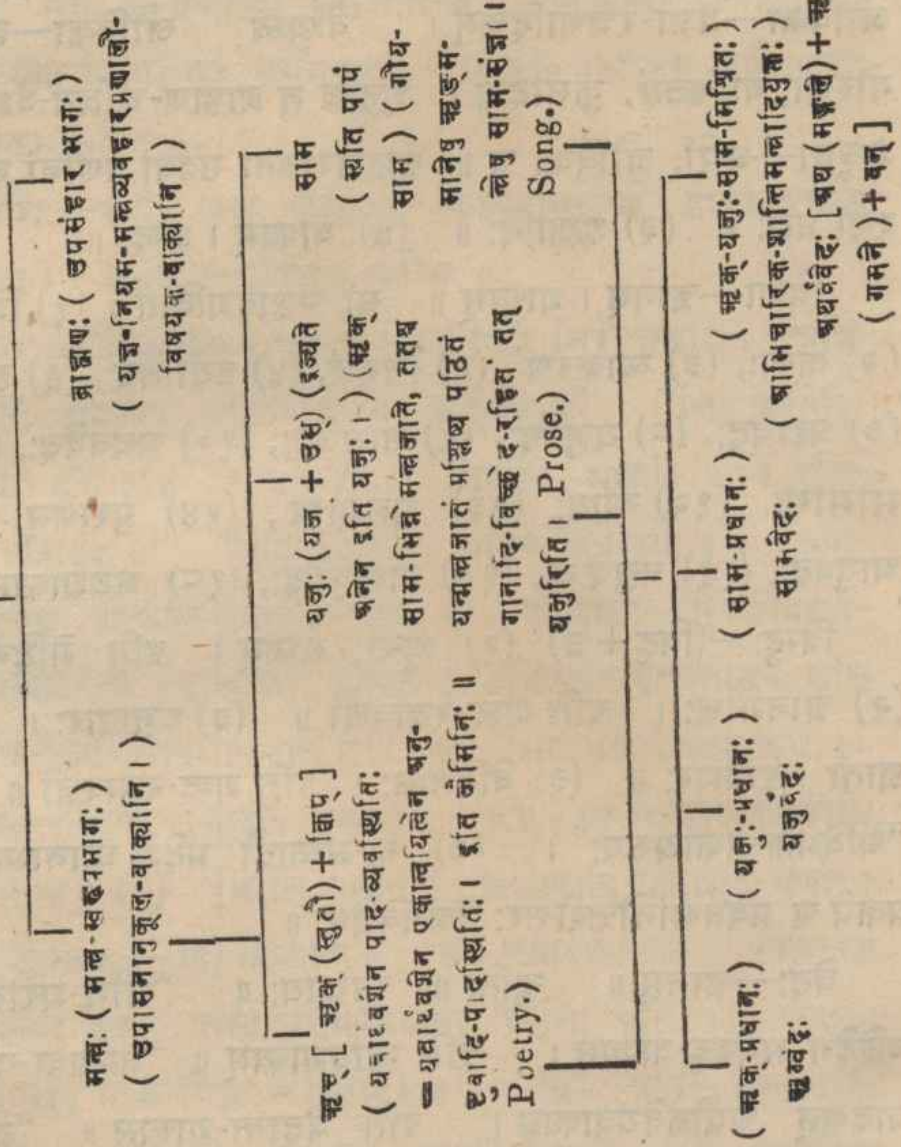 मन्त्रः ( मन्त्र-सङ्कारभागः )
( उपासनानुकूल-वाक्यानि । )
ब्राह्मणः ( उपसंहार भागः )
( यज्ञ-नियम-मन्त्रव्यवहारप्रणाली-
विषयक-वाक्यानि । )
ऋच् [ ऋक् (स्तुतौ) + क्विप् ]
( यत्रार्थवशेन पाद-व्यवस्थितिः
= यत्रार्थवशेन एकान्वयित्वेन अनु-
ष्टुवादि-पादस्थितिः । इति जैमिनिः ॥
Poetry.)
यजुः (यज + उस्) (इज्यते
अनेन इति यजुः । ) (ऋक्
साम-भिन्ने मन्त्रजाते, ततश्च
यन्मन्त्रजातं प्रश्लिष्य पठितं
गानादि-विच्छेद-रहितं तत्
यजुरिति । Prose.)
साम
( स्यति पापं
साम ) ( गीय-
मानेषु ऋङ्म-
न्त्रेषु साम-संज्ञा ।
Song.)
( ऋक्-प्रधानः )
ऋग्वेदः
( यजुः-प्रधानः )
यजुर्व्वेदः
( साम-प्रधानः )
सामवेदः
( ऋक्-यजुः-साम-मिश्रितः )
( आभिचारिक-शान्तिमन्त्रादियुक्तः
अथर्व्ववेदः [ अथ (मङ्गले) + ऋ
( गमने ) + वन् ]